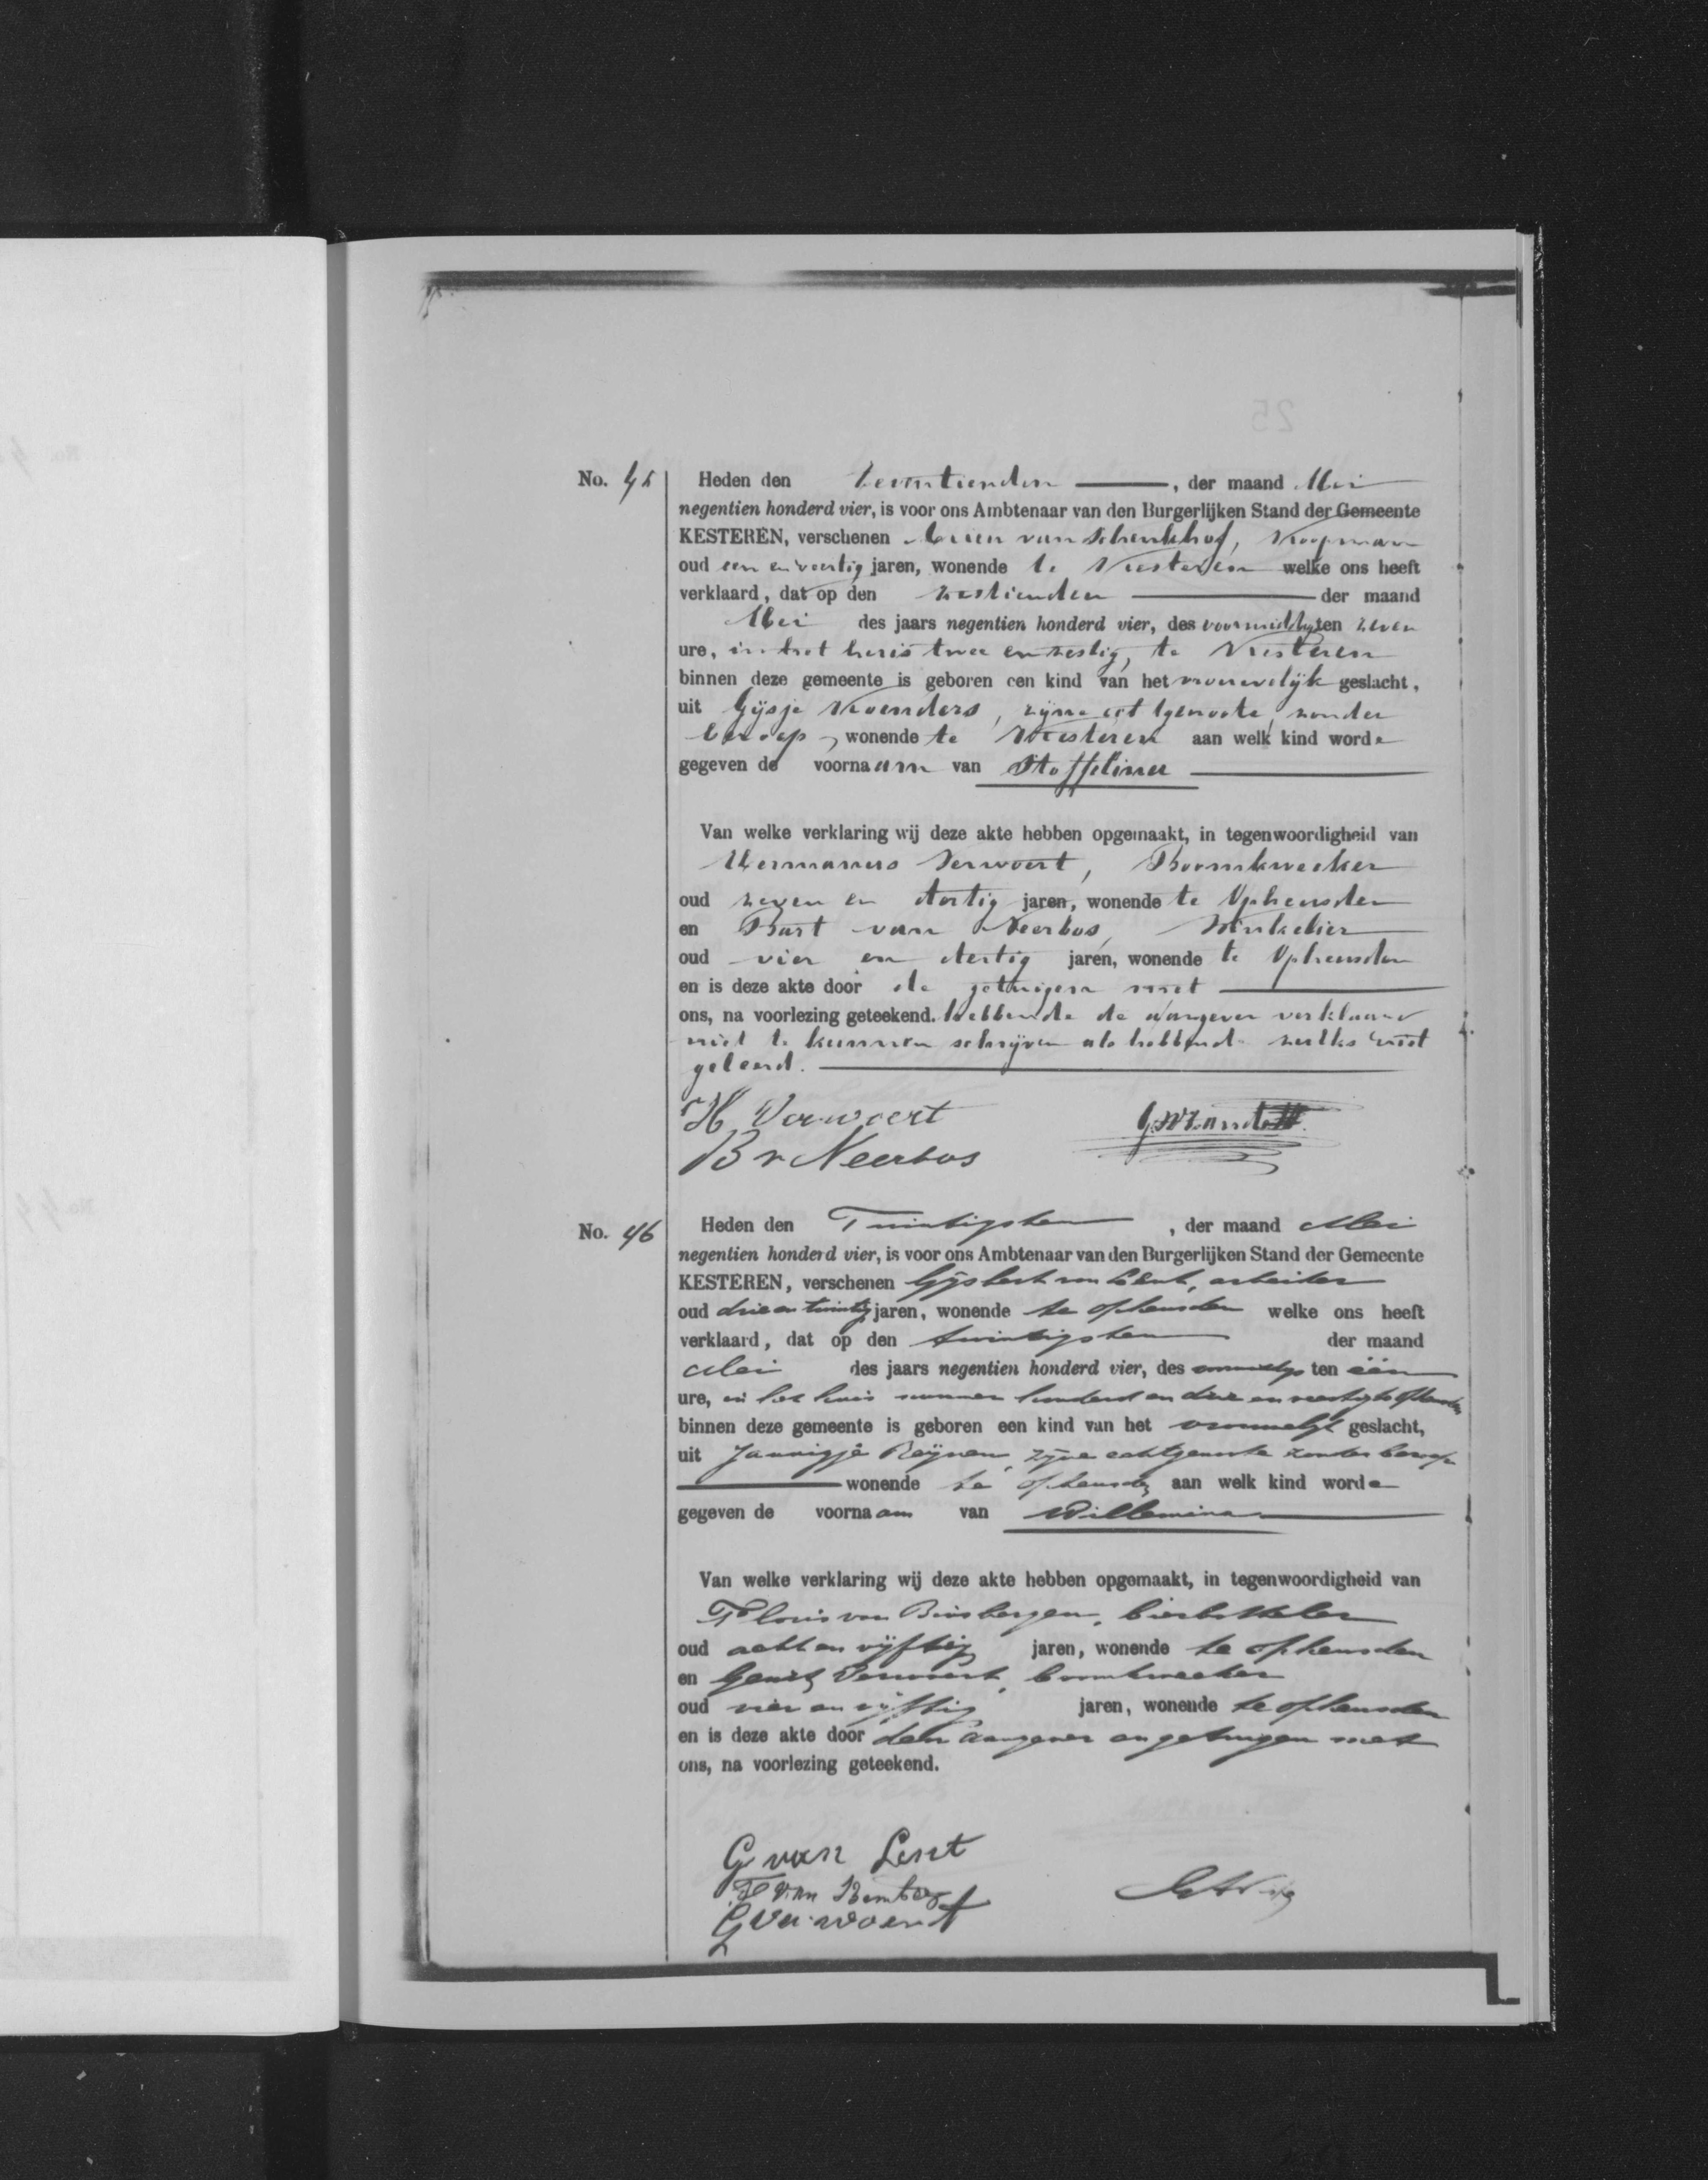 No. 45 Heden den zeventienden, der maand Mei
negentien honderd vier, is voor ons Ambtenaar van den Burgerlijken Stand der Gemeente
KESTEREN, verschenen Arien van Schenkhof, Koopman
oud een en veertig jaren, wonende te Kesteren welke ons heeft
verklaard, dat op den zestienden der maand
Mei des jaars negentien honderd vier, des voormiddags ten zeven
ure, in het huis twee en zestig, te Kesteren
binnen deze gemeente is geboren een kind van het vrouwelijk geslacht,
uit Gijsje Koenders, zijne echtgenoote, zonder
beroep, wonende te Kesteren aan welk kind worde
gegeven de voornaam van Stoffelina
Van welke verklaring wij deze akte hebben opgemaakt, in tegenwoordigheid van
Hermanus Verwoert, Boomkweeker
oud zeven en dertig jaren, wonende te Opheusden
en Bart van Neerbos, Winkelier
oud vier en dertig jaren, wonende te Opheusden
en is deze akte door de getuigen met
ons, na voorlezing geteekend. hebbende de aangever verklaard
niet te kunnen schrijven als hebbende zulks niet
geleerd.
H Verwoert
B v Neerbos
No. 46 Heden den Twintigsten, der maand Mei
negentien honderd vier, is voor ons Ambtenaar van den Burgerlijken Stand der Gemeente
KESTEREN, verschenen Gijsbert van Lent, arbeider
oud drie en twintig jaren, wonende te Opheusden welke ons heeft
verklaard, dat op den twintigsten der maand
Mei des jaars negentien honderd vier, des voormiddags ten één
ure, in het huis nummer honderd en drie en veertig te Opheusden
binnen deze gemeente is geboren een kind van het vrouwelijk geslacht,
uit Jannigje Reijnen, zijne echtgenoote zonder beroep
wonende te Opheusden aan welk kind worde
gegeven de voornaam van Willemina
Van welke verklaring wij deze akte hebben opgemaakt, in tegenwoordigheid van
Floris van Binsbergen,
oud acht en vijftig jaren, wonende te Opheusden
en Gerrit Verwoert, boomkweeker
oud vier en vijftig jaren, wonende te Opheusden
en is deze akte door den aangever en getuigen met
ons, na voorlezing geteekend.
G van Lent
F van
G Verwoert